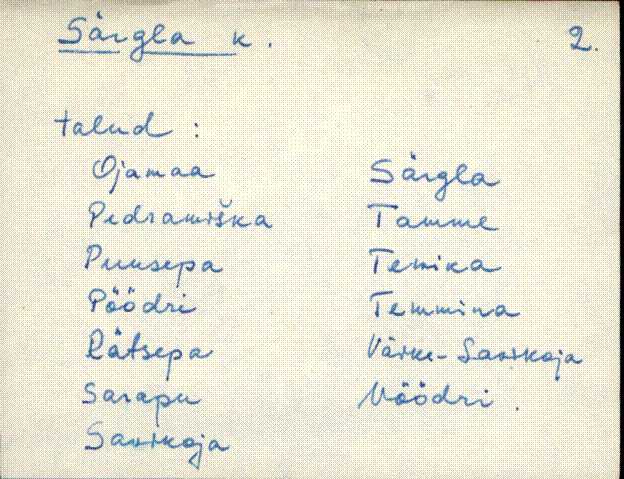 Särgla k. 2.
talud :
Ojamaa
Pedramiška
Puusepa
Pöödri
Rätsepa
Sarapu
Savikoja
Särgla
Tamme
Temmina
Väike-Savikoja
Möödri.